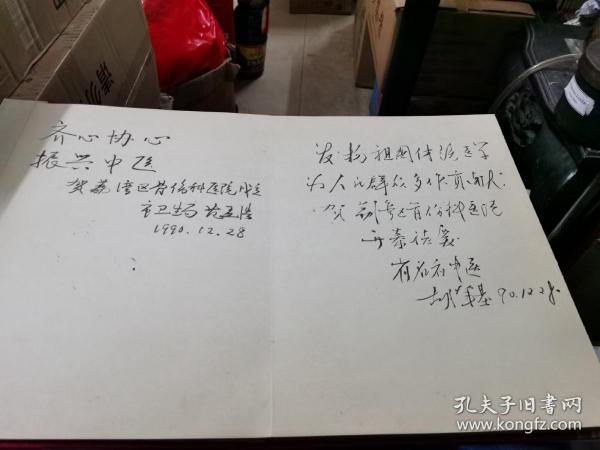 齐心协心
振兴中医
贺荔湾区骨伤科医院成立
市卫生局
1990.12.28
发扬祖国传统医学
为人民群众多作贡献
贺荔湾区骨伤科医院
开幕志庆
省名老中医
90.12.28
孔夫子旧书网
www.kongfz.com